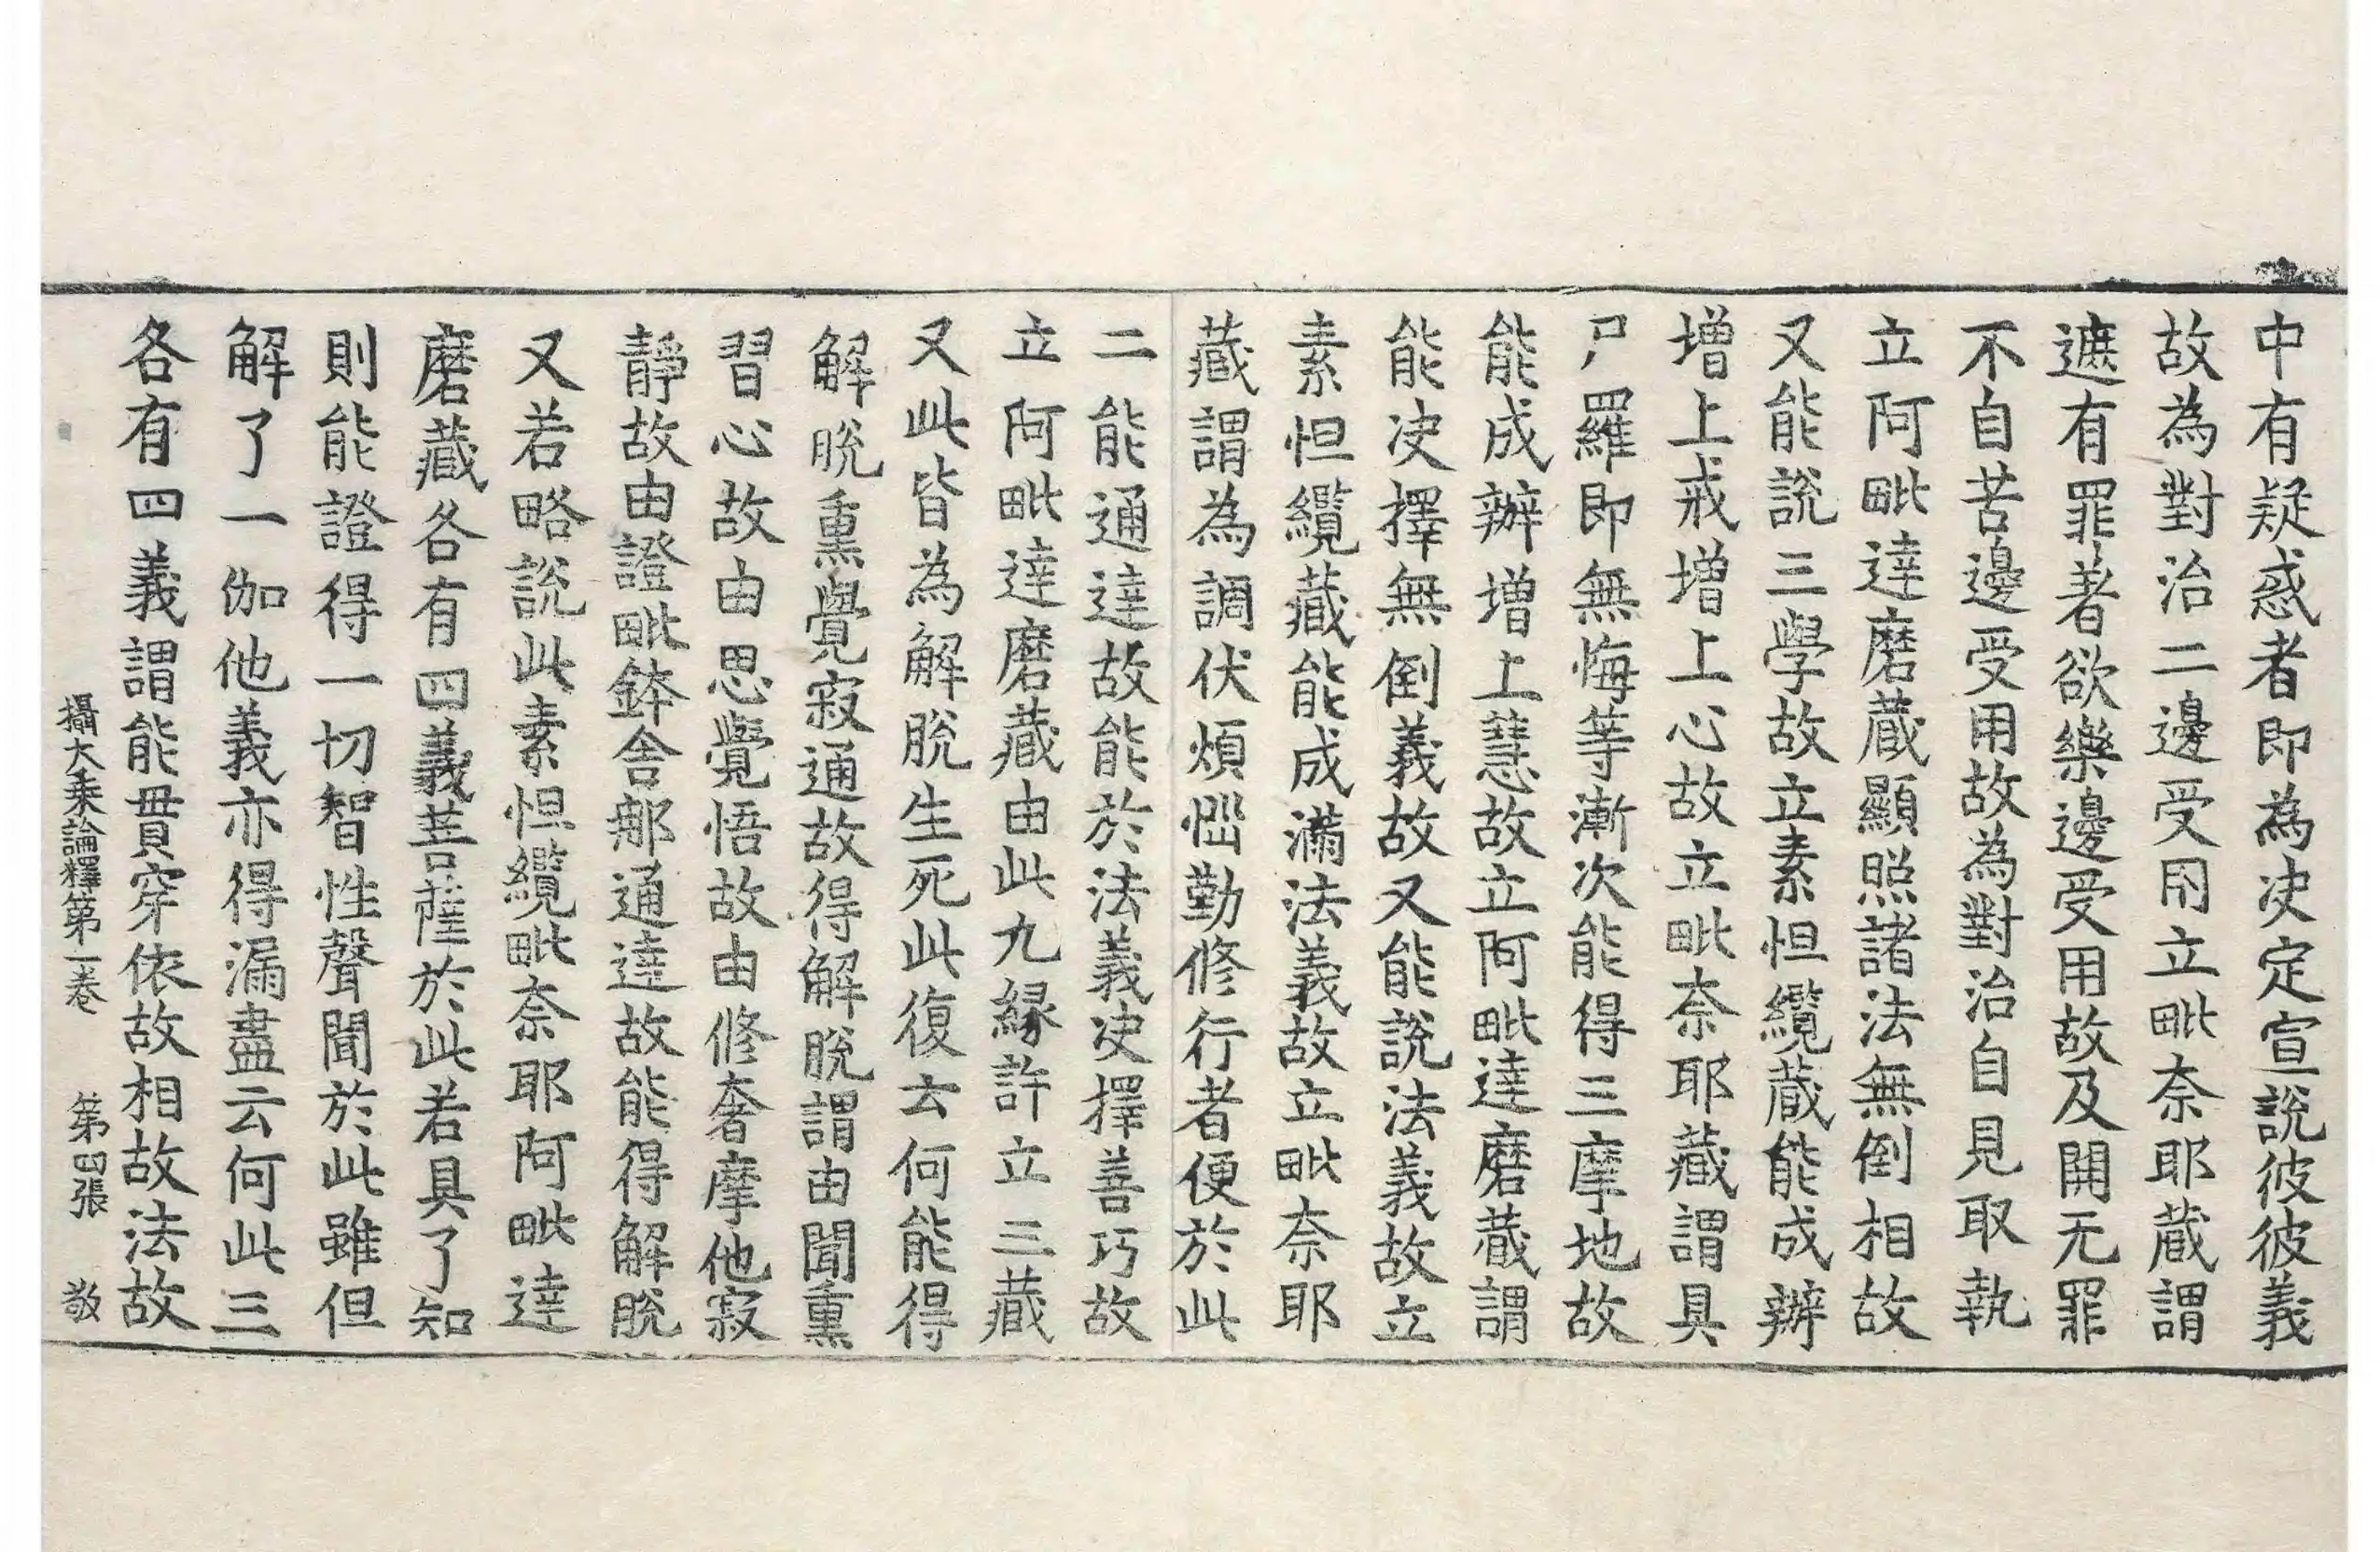 中有疑惑者即為决定宣說彼彼義
故為對治二邊受用立毗奈耶蔵謂
遮有罪著欲樂邊受用故及開无罪
不自苦邊受用故為對治自見取執
立阿毗達磨蔵顯照諸法無倒相故
又能說三學故立素怛纜蔵能成辦
增上戒增上心故立毗奈耶蔵謂具
尸羅即無悔等漸次能得三摩地故
能成辦增上慧故立阿毗達磨蔵謂
能决擇無倒義故又能說法義故立
素怛纜蔵能成滿法義故立毗奈耶
蔵謂為調伏煩惱勤修行者便於此
二能通達故能於法義决擇善巧故
立阿毗達磨蔵由此九緣許立三蔵
又此皆為解脫生死此復云何能得
解脫熏覺寂通故得解脫謂由聞熏
習心故由思覺悟故由修奢摩他寂
靜故由證毗鉢舍那通達故能得解脫
又若略說此素怛纜毗奈耶阿毗達
磨蔵各有四義菩薩於此若具了知
則能證得一切智性聲聞於此雖但
解了一伽他義亦得漏盡云何此三
各有四義謂能貫穿依故相故法故
攝大乘論釋第一卷 第四張 敬